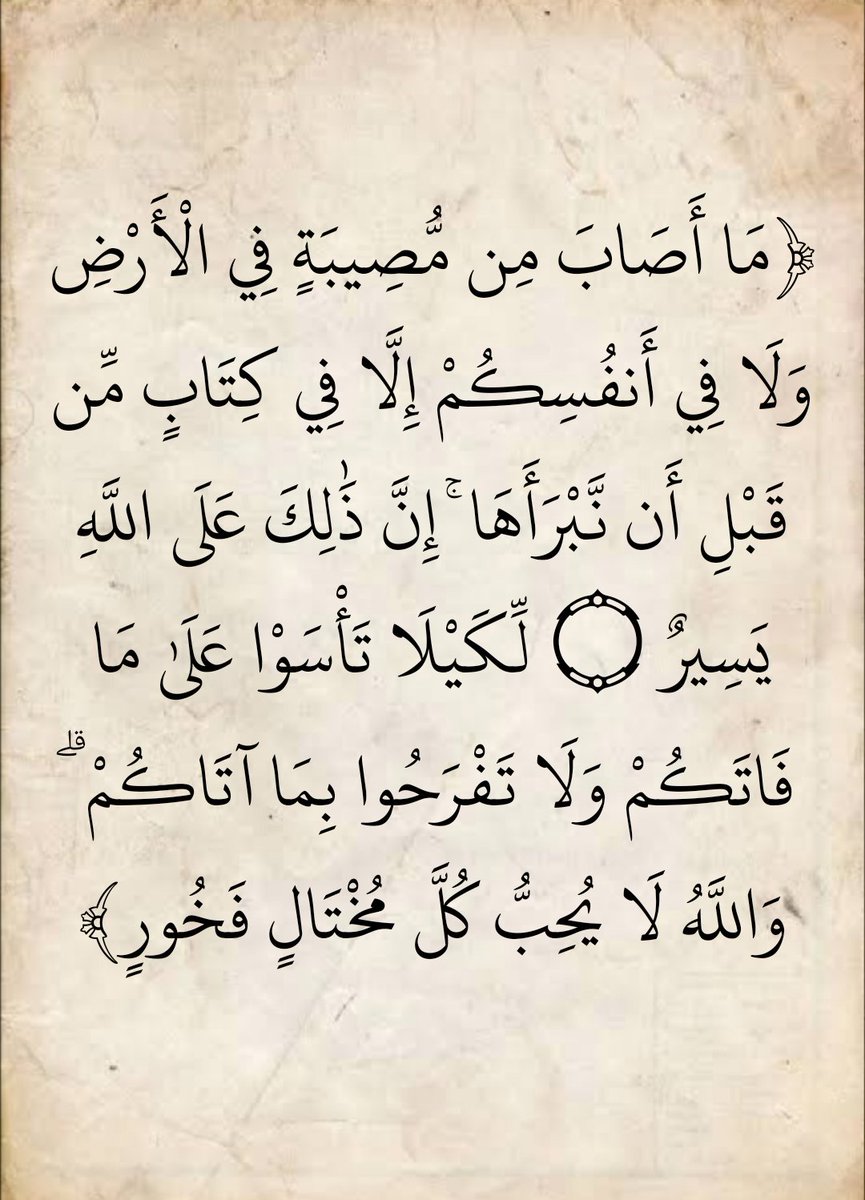 ﴿مَا أَصَابَ مِن مُّصِيبَةٍ فِي الْأَرْضِ
وَلَا فِي أَنفُسِكُمْ إِلَّا فِي كِتَابٍ مِّن
قَبْلِ أَن نَّبْرَأَهَا ۚ إِنَّ ذَٰلِكَ عَلَى اللَّهِ
يَسِيرٌ ۝ لِّكَيْلَا تَأْسَوْا عَلَىٰ مَا
فَاتَكُمْ وَلَا تَفْرَحُوا بِمَا آتَاكُمْ ۗ
وَاللَّهُ لَا يُحِبُّ كُلَّ مُخْتَالٍ فَخُورٍ﴾